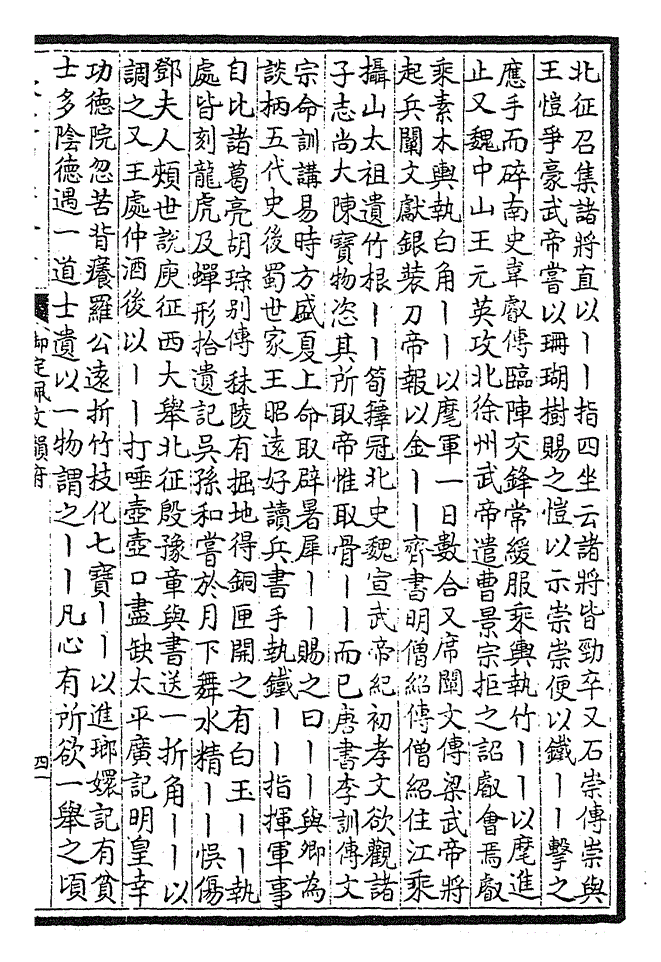 北征召集諸將直以丨丨指四坐云諸將皆勁卒又石崇傳崇與
王愷爭豪武帝嘗以珊瑚樹賜之愷以示崇崇便以鐵丨丨擊之
應手而碎南史韋叡傳臨陣交鋒常緩服乘輿執竹丨丨以麾進
止又魏中山王元英攻北徐州武帝遣曹景宗拒之詔叡會焉叡
乘素木輿執白角丨丨以麾軍一日數合又席闡文傳梁武帝將
起兵闡文獻銀裝刀帝報以金丨丨齊書明僧紹傳僧紹住江乘
攝山太祖遺竹根丨丨筍籜冠北史魏宣武帝紀初孝文欲觀諸
子志尚大陳寶物恣其所取帝惟取骨丨丨而已唐書李訓傳文
宗命訓講易時方盛夏上命取辟暑犀丨丨賜之曰丨丨與卿為
談柄五代史後蜀世家王昭遠好讀兵書手執鐵丨丨指揮軍事
自比諸葛亮胡琮別傳秣陵有掘地得銅匣開之有白玉丨丨執
處皆刻龍虎及蟬形拾遺記吳孫和嘗於月下舞水精丨丨悞傷
鄧夫人頰世說庾征西大舉北征殷豫章與書送一折角丨丨以
調之又王處仲酒後以丨丨打唾壺壺口盡缺太平廣記明皇幸
功德院忽苦背癢羅公遠折竹技化七寶丨丨以進瑯嬛記有貧
士多陰德遇一道士遺以一物謂之丨丨凡心有所欲一舉之頃
御定佩文韻府
四一